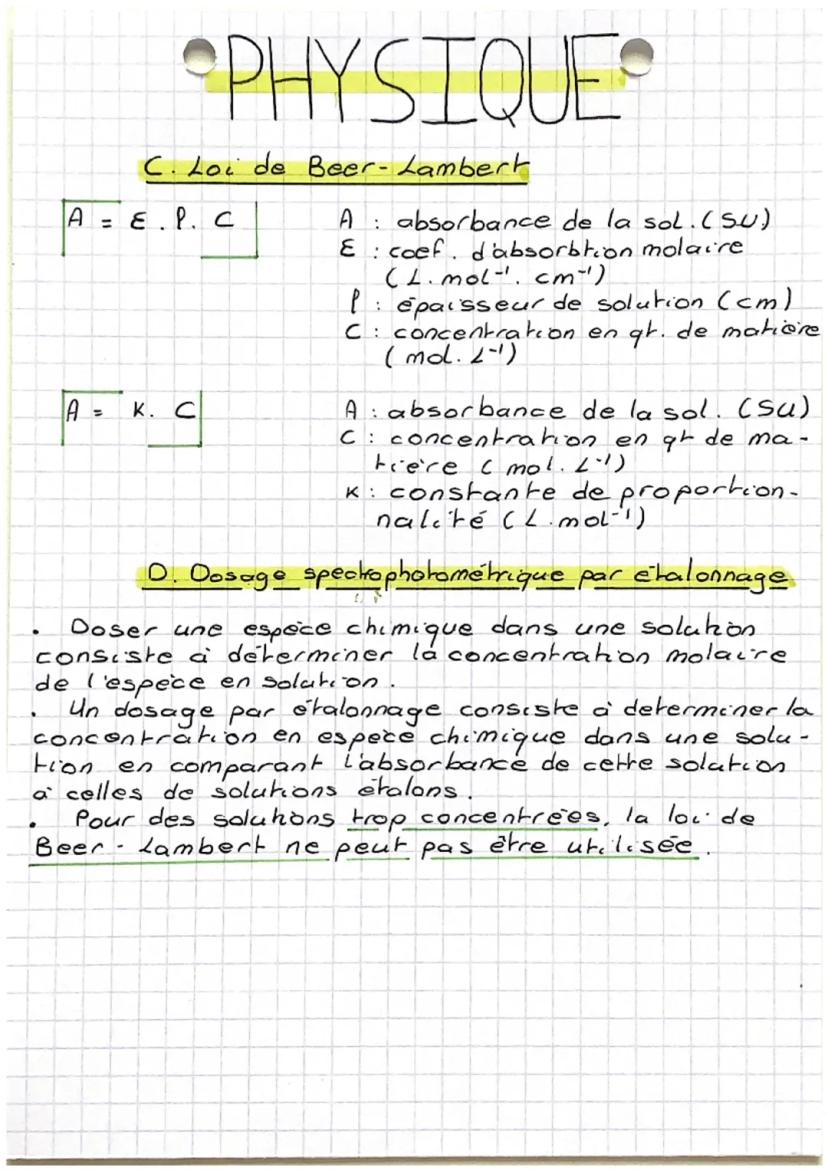 PHYSIQUE
C. Loi de Beer-Lambert
A = ε . l . C
A : absorbance de la sol. (SU)
ε : coef. d'absorbtion molaire
(L. mol⁻¹. cm⁻¹)
l : épaisseur de solution (cm)
C : concentration en qt. de matière
(mol. L⁻¹)
A = K. C
A : absorbance de la sol. (SU)
C : concentration en qt de ma-
tière (mol. L⁻¹)
K : constante de proportion-
nalité (L.mol⁻¹)
D. Dosage spectrophotométrique par étalonnage
. Doser une espèce chimique dans une solution
consiste à déterminer la concentration molaire
de l'espèce en solution.
. Un dosage par étalonnage consiste à déterminer la
concentration en espèce chimique dans une solu-
tion en comparant l'absorbance de cette solution
à celles de solutions étalons.
. Pour des solutions trop concentrées, la loi de
Beer-Lambert ne peut pas être utilisée.